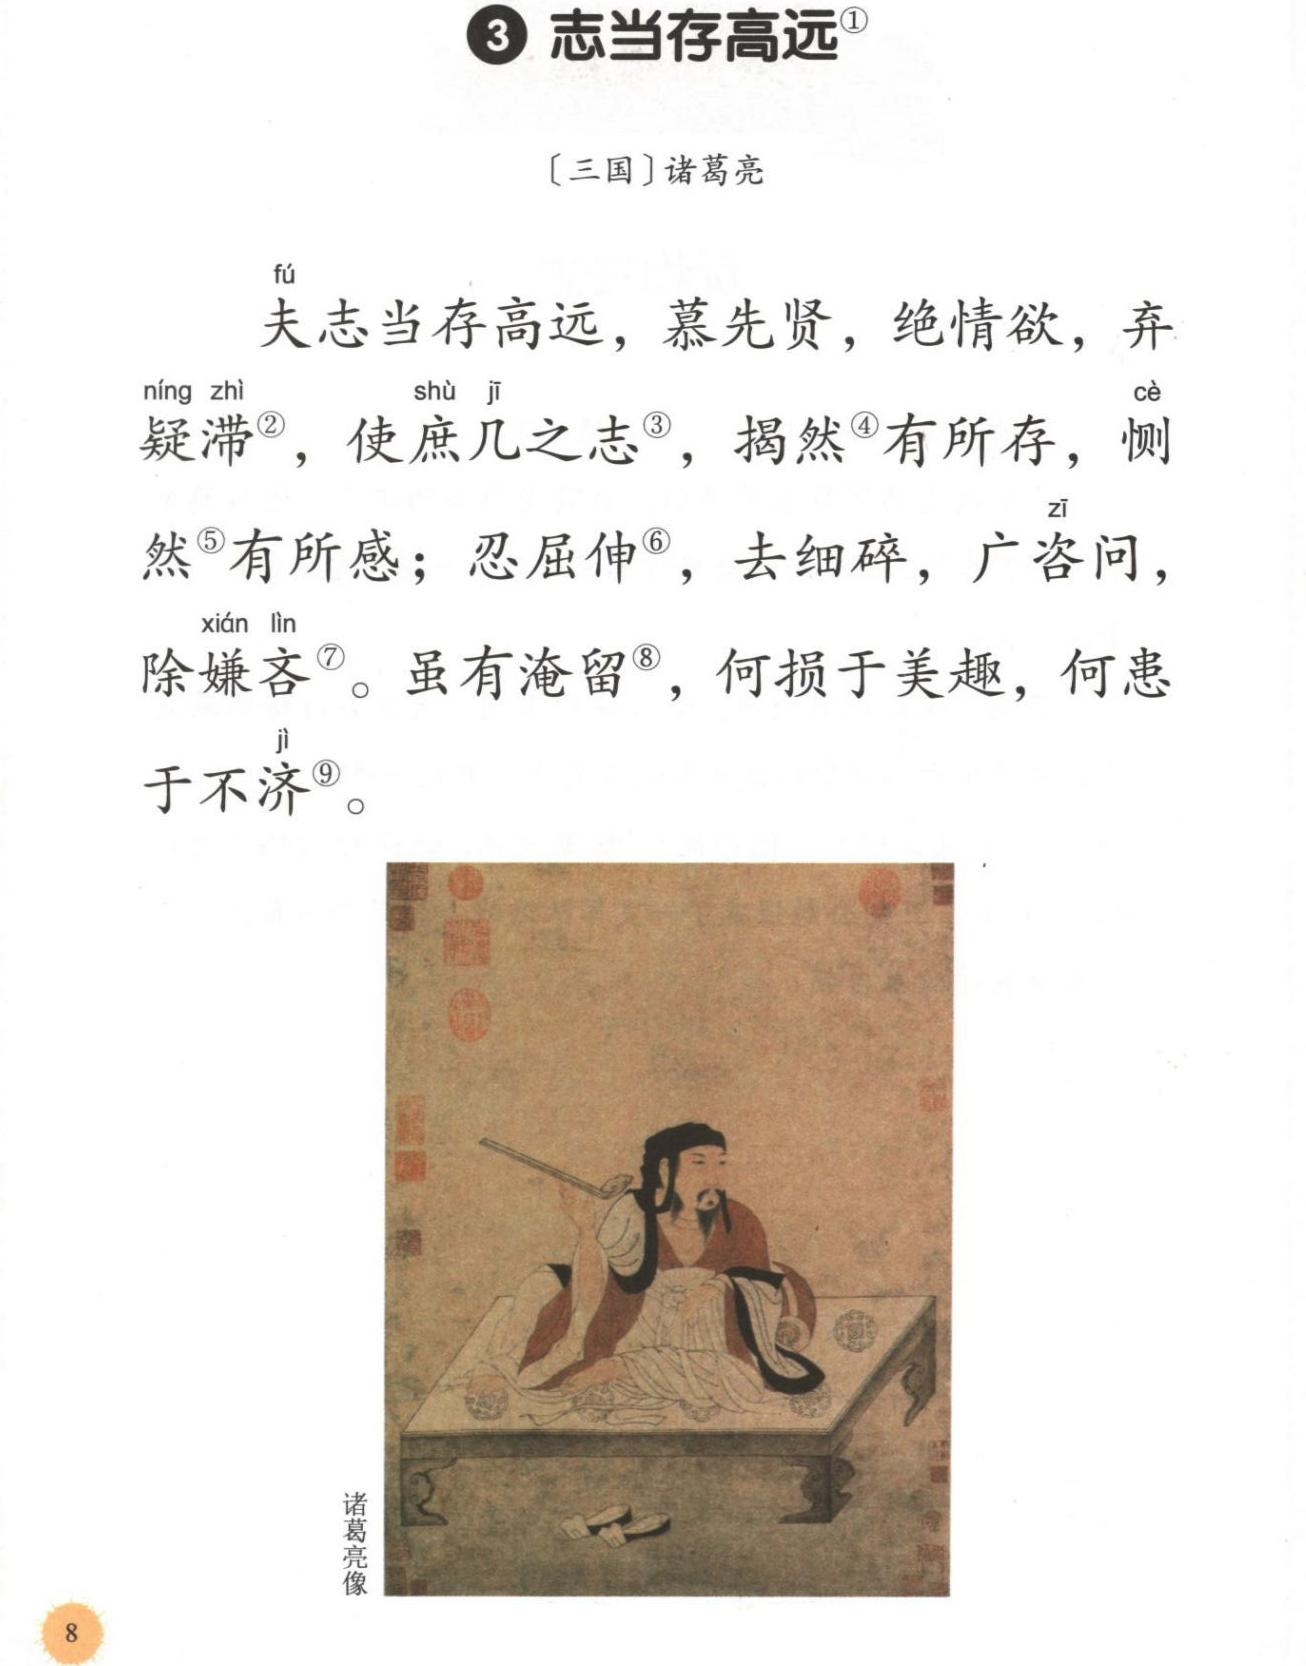 3 志当存高远①
〔三国〕诸葛亮
fú
夫志当存高远，慕先贤，绝情欲，弃
níng zhì shù jī cè
疑滞②，使庶几之志③，揭然④有所存，恻
zī
然⑤有所感；忍屈伸⑥，去细碎，广咨问，
xián lìn
除嫌吝⑦。虽有淹留⑧，何损于美趣，何患
jì
于不济⑨。
诸葛亮像
8